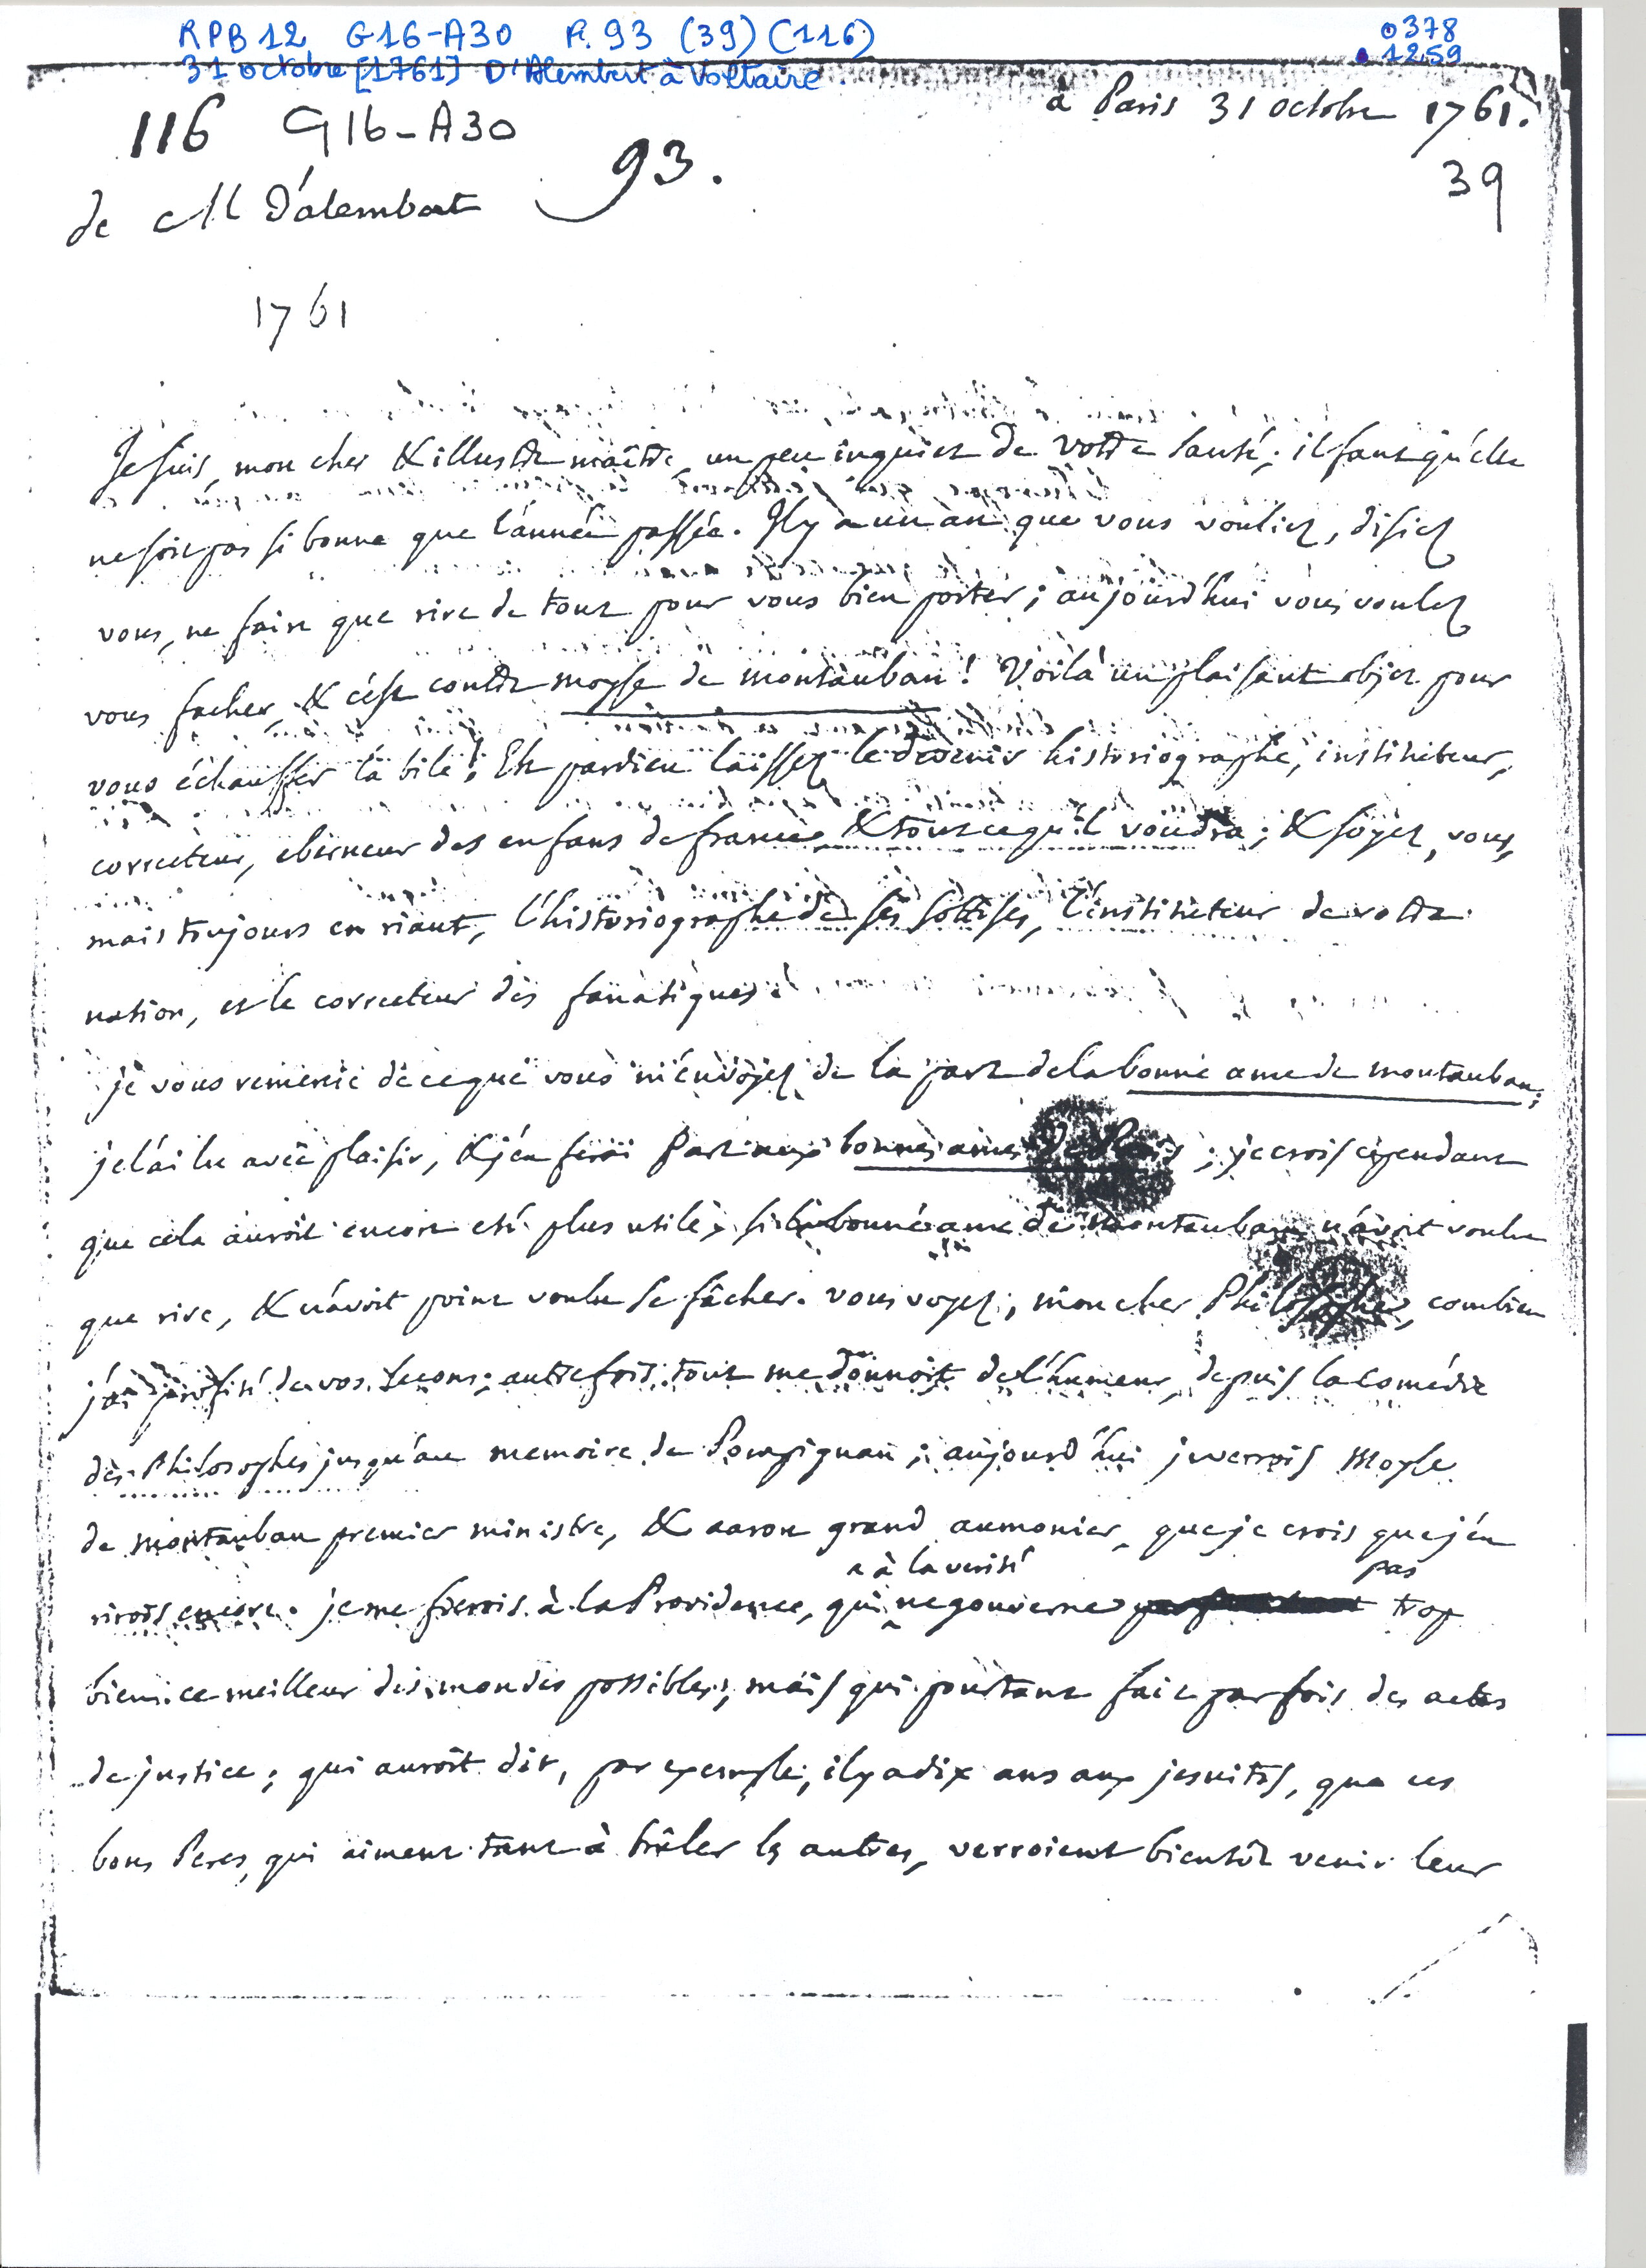 RPB 12 G16-A30 R. 93 (39) (116)
0378
31 octobre [1761] D'Alembert à Voltaire
1259
à Paris 31 octobre 1761.
116 G16-A30
93.
39
de M D'alembert
1761
Je suis, mon cher & illustre maître, un peu inquiet de votre santé; il faut qu'elle
ne soit pas si bonne que l'année passée. Il y a un an que vous vouliez, disiez
vous, ne faire que rire de tout pour vous bien porter; aujourd'hui vous voulez
vous facher, & c'est contre moyse de montauban! Voilà un plaisant objet pour
vous échauffer la bile! Eh pardieu laissez le devenir historiographe, instituteur,
correcteur, eberneur des enfans de france, & tout ce qu'il voudra; & soyez, vous,
mais toujours en riant, l'historiographe de ses sottises, l'instituteur de votre
nation, et le correcteur des fanatiques.
je vous remercie de ce que vous m'envoyez de la part de la bonne ame de montauban;
je l'ai lu avec plaisir, & j'en ferai part aux bonnes ames de Paris; je crois cependant
que cela auroit encore eté plus utile, si la bonne ame de montauban n'avoit voulu
que rire, & n'avoit point voulu se fâcher. vous voyez, mon cher Philosophe, combien
j'ai profité de vos Lecons; autrefois tout me donnoit de l'humeur, depuis la Comédie
des Philosophes jusqu'au memoire de Pompignan; aujourd'hui je verrois Moyse
de montauban premier ministre, & aaron grand aumonier, que je crois que j'en
à la verité pas
rirois encore. je me fierois à la Providence, qui ne gouverne trop
bien ce meilleur des mondes possibles, mais qui pourtant fait parfois des actes
de justice; qui auroit dit, par exemple, il y a dix ans aux jesuites, que ces
bons Peres, qui aiment tant à brûler les autres, verroient bientôt venir leur